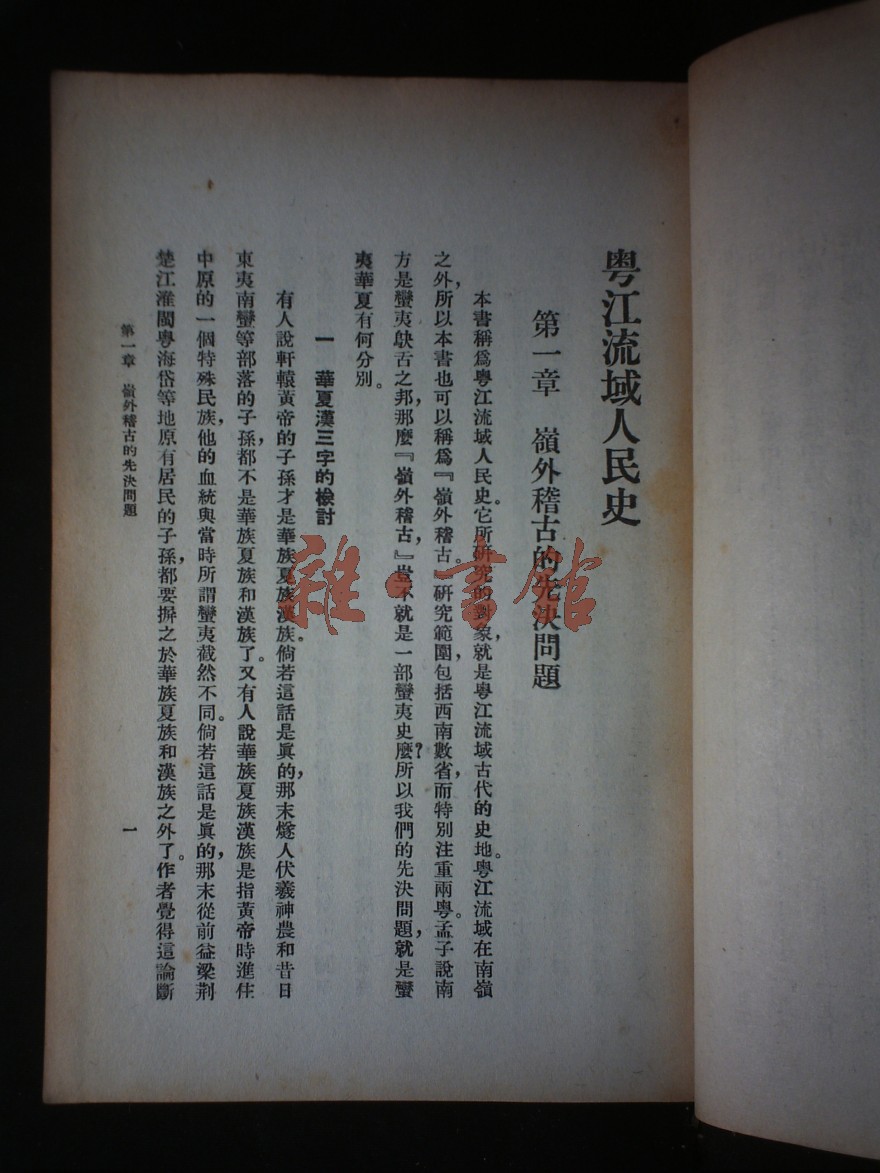 粵江流域人民史
第一章　嶺外稽古的先決問題
本書稱爲粵江流域人民史。它所研究的對象,就是粵江流域古代的史地。粵江流域在南嶺
之外,所以本書也可以稱爲『嶺外稽古。』研究範圍,包括西南數省,而特別注重兩粵。孟子說南
方是蠻夷鴃舌之邦,那麼『嶺外稽古,』豈不就是一部蠻夷史麼?所以我們的先決問題,就是蠻
夷華夏有何分別。
一　華夏漢三字的檢討
有人說軒轅黃帝的子孫才是華族夏族漢族。倘若這話是眞的,那末燧人伏羲神農和昔日
東夷南蠻等部落的子孫,都不是華族夏族和漢族了。又有人說華族夏族漢族是指黃帝時進住
中原的一個特殊民族,他的血統與當時所謂蠻夷截然不同。倘若這話是眞的,那末從前益梁荆
楚江淮閩粵海岱等地原有居民的子孫,都要摒之於華族夏族和漢族之外了。作者覺得這論斷
第一章　嶺外稽古的先決問題
一
雜·書館